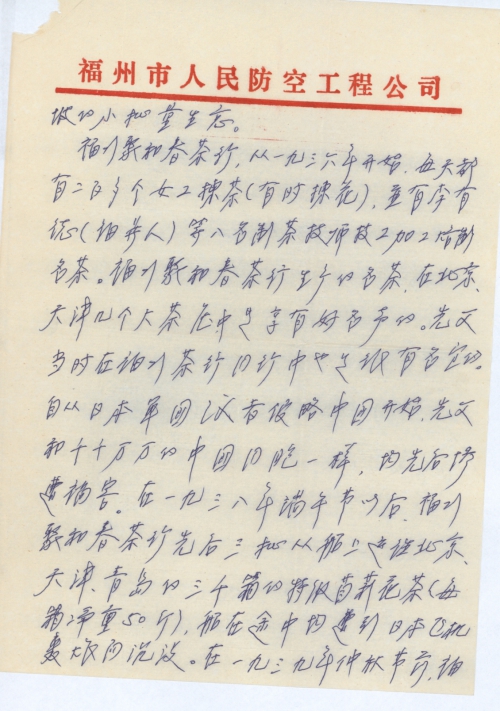 福州市人民防空工程公司
坡的小批量生意。
福州聚和春茶行，从一九三六年开始，每天都
有二百多个女工拣茶（有时拣花），并有李有
（福州人）等八名制茶技师技工加工焙制
名茶。福州聚和春茶行生产的名茶，在北京、
天津几个大茶庄中是享有好名声的。先父
当时在福州茶行同行中也是很有名望的。
自从日本军国主义者侵略中国开始，先父
和千千万万的中国同胞一样，均先后惨
遭祸害。在一九三八年端午节以后，福州
聚和春茶行先后三批从船上运往北京、
天津、青岛的三千箱的特级茉莉花茶（每
箱净重50斤），船在途中均遭到日本飞机
轰炸而沉没。在一九三九年仲秋节前，福